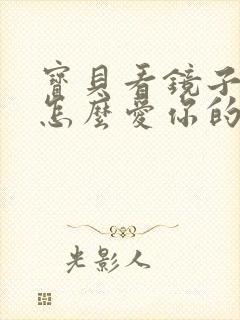 寶貝看鏡子
怎麼愛你的
光影人